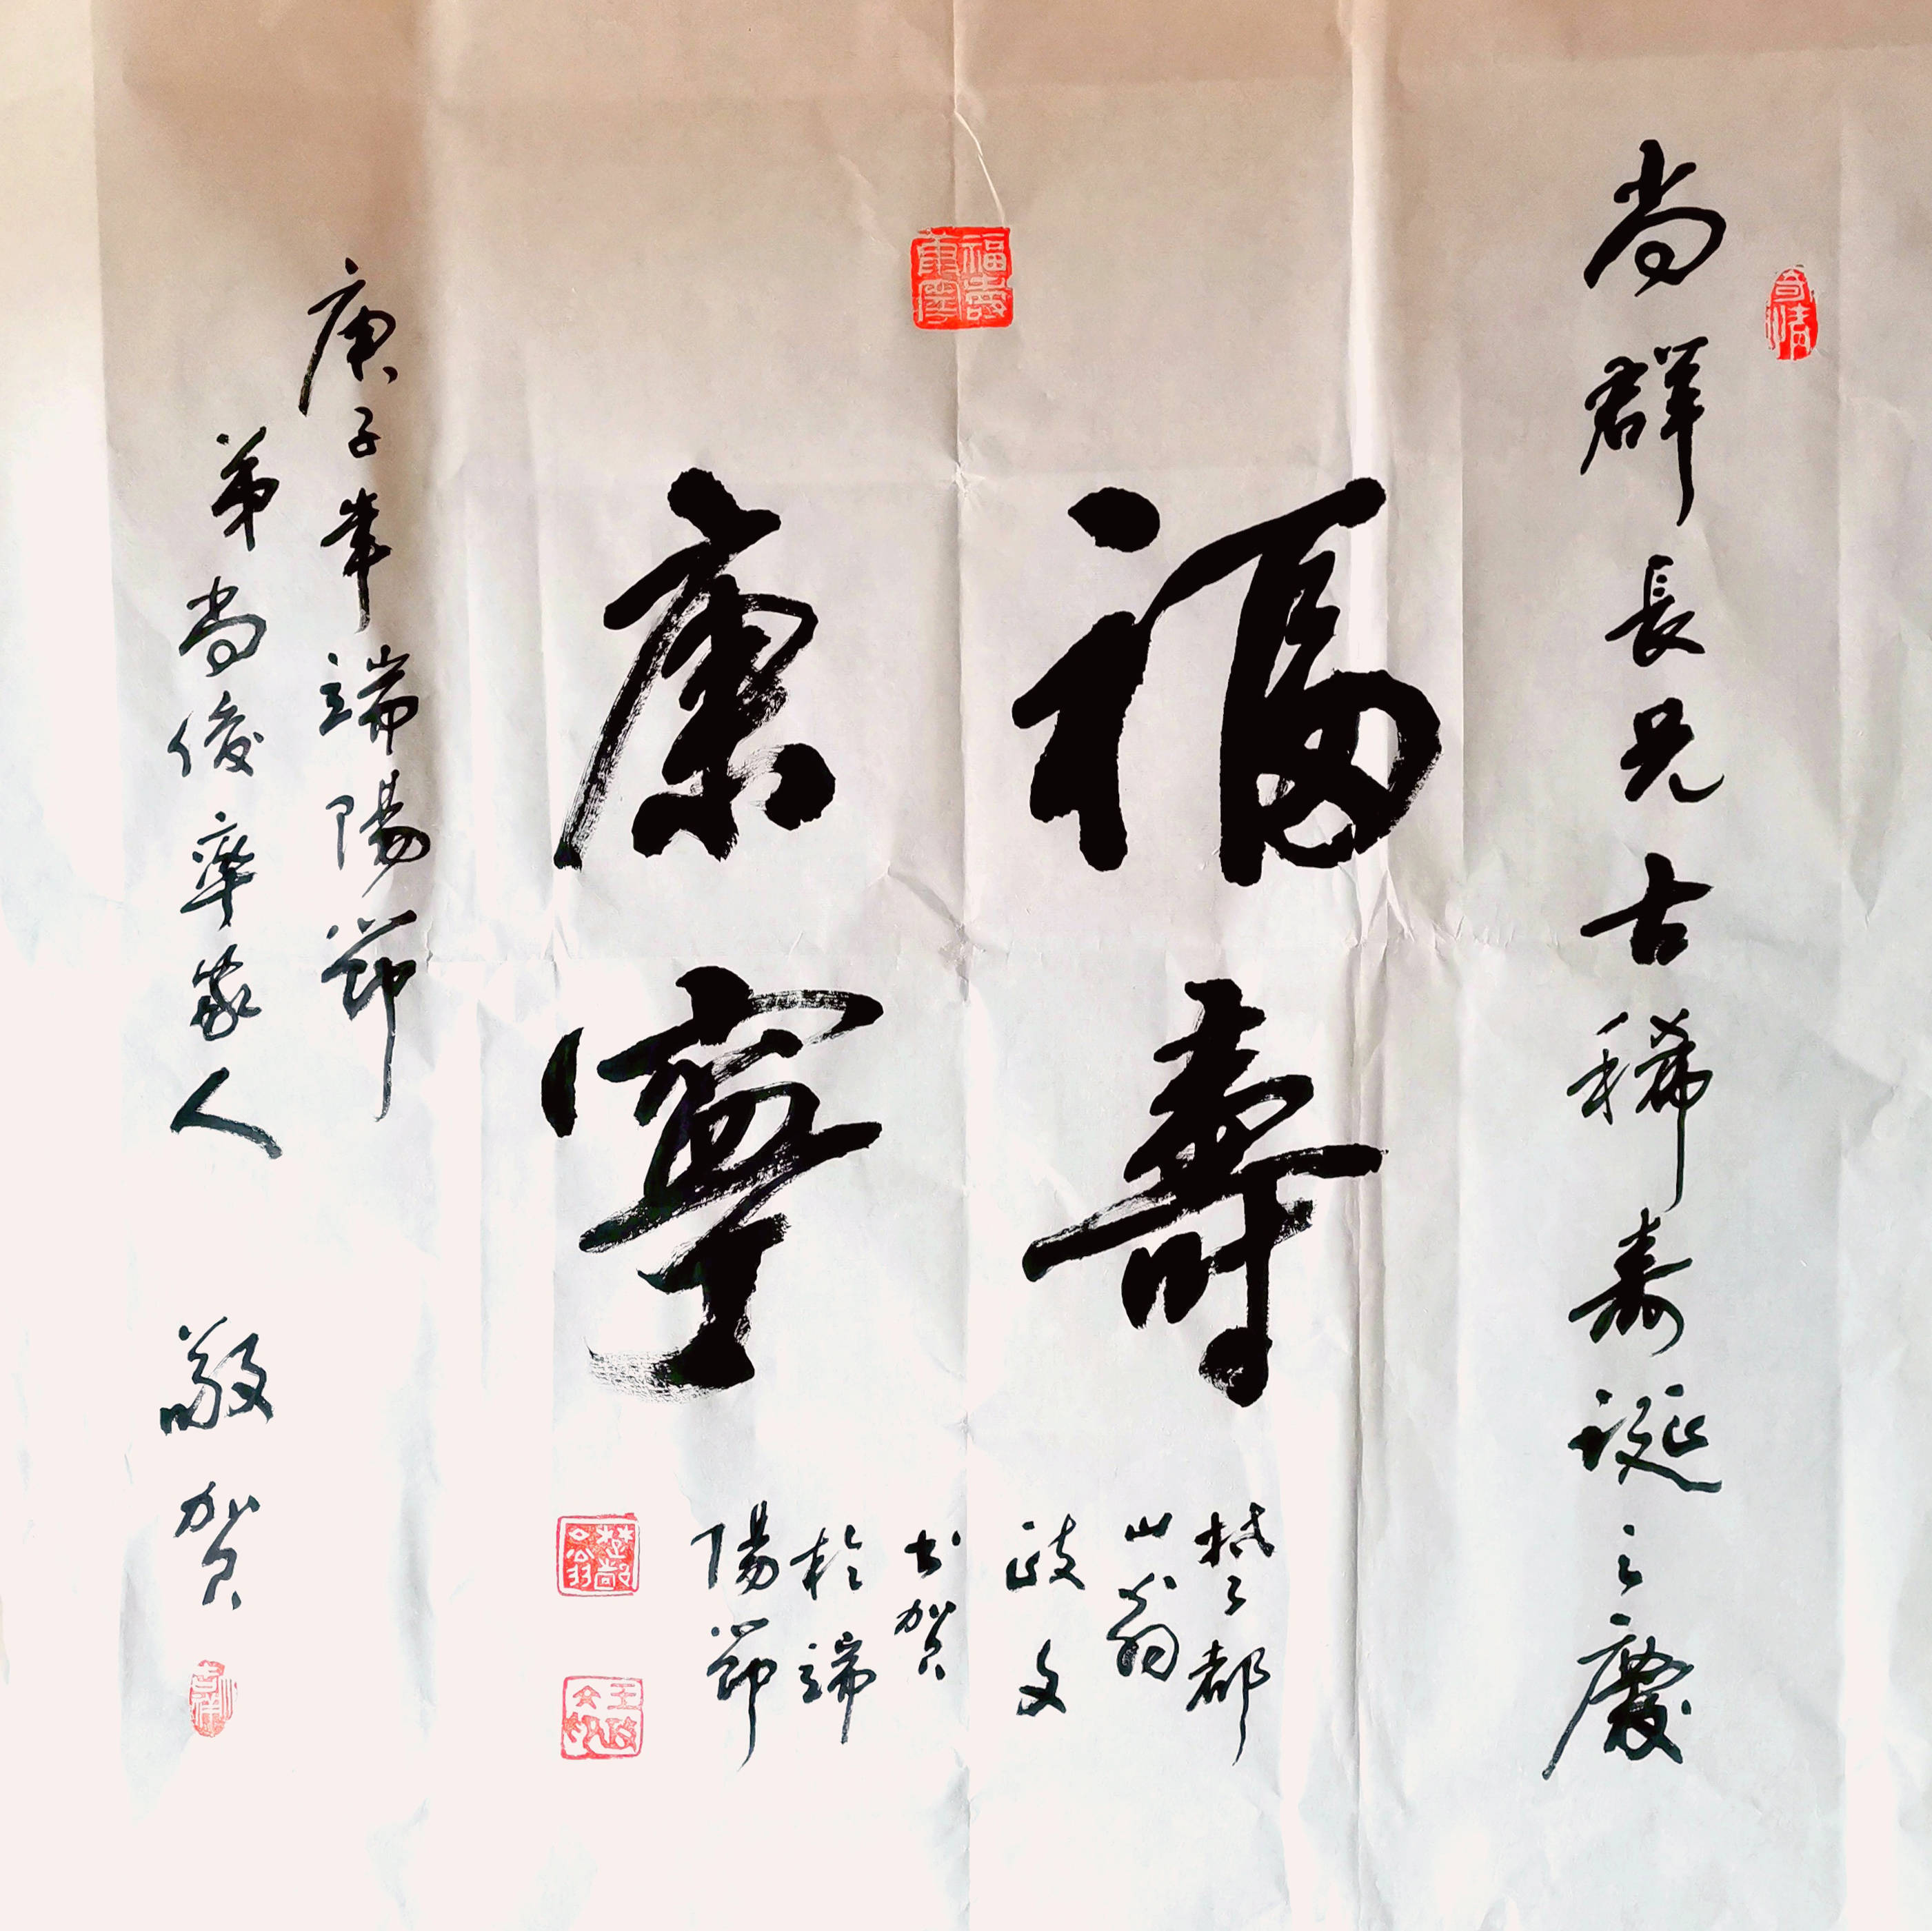 尚群長兄古稀寿誕之慶
福壽
康寧
福壽康寧
楚都
山翁
政文
书贺
於端
陽節
楚都山翁
庚子年端陽節
弟尚俊率家人 敬贺